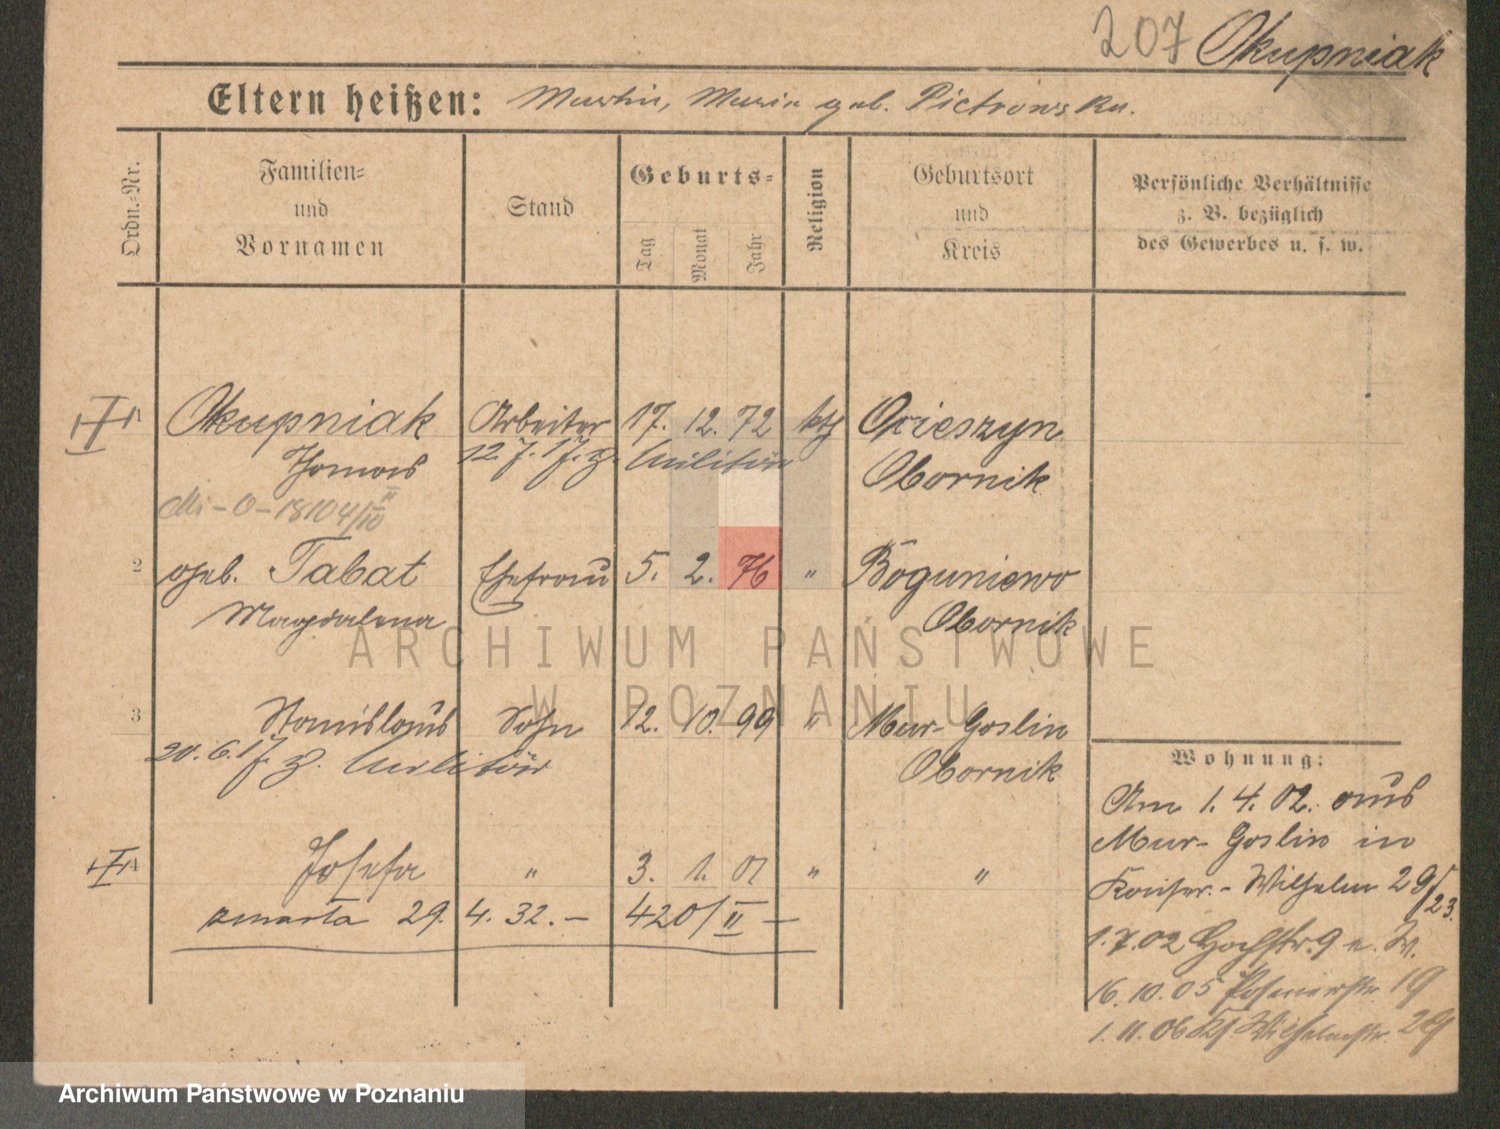 207 Okupniak
Eltern heißen: Martin, Maria geb. Pietrowska.
Ordn.-Nr.
Familien- und Vornamen
Stand
Geburts-
Tag Monat Jahr
Religion
Geburtsort und Kreis
Persönliche Verhältnisse z. B. bezüglich des Gewerbes u. s. w.
Okupniak Arbeiter 17. 12. 72 kth Ocieszyn
Thomas 12.7.17. z. Militär Obornik
Mi-O-18104/III
2 geb. Tabat Ehefrau 5. 2. 76 " Boguniewo
Magdalena Obornik
ARCHIWUM PAŃSTWOWE
W POZNANIU
3 Stanislaus Sohn 12. 10. 99 " Mur-Goslin
20.6.17. z. Militär Obornik
Josefa " 3. 1. 01 " "
zmarła 29. 4. 32. – 420/II –
Wohnung:
Am 1. 4. 02. aus
Mur-Goslin in
Kaiser-Wilhelm 29/23.
1.7.02 Hochstr. 9 b. W.
16.10.05 Posenerstr 19
1.11.06 Ks. Wilhelmstr. 29
Archiwum Państwowe w Poznaniu